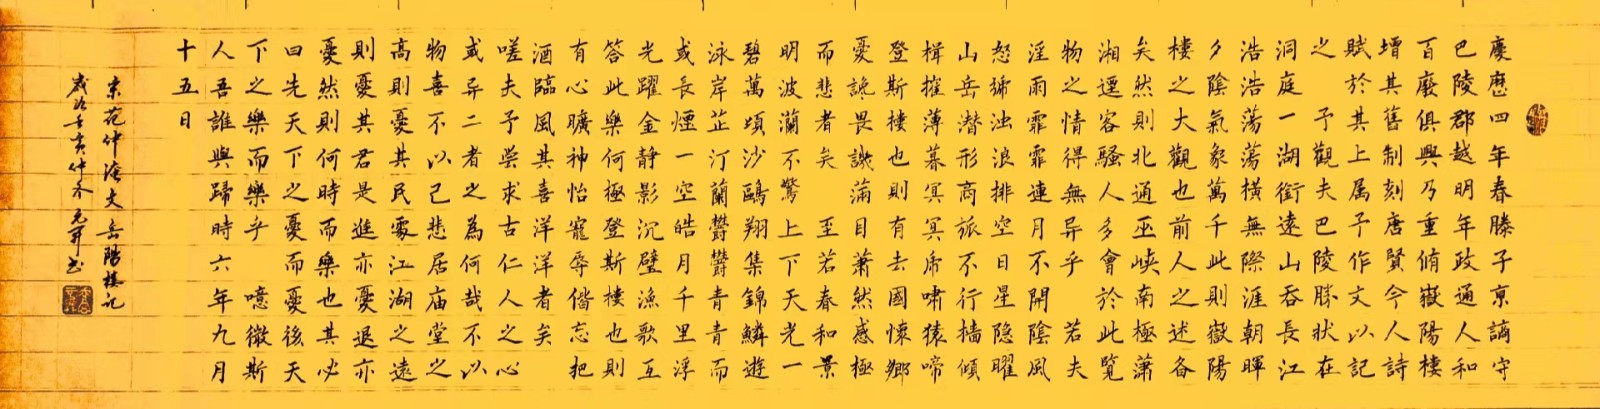 慶曆四年春滕子京謫守
巴陵郡越明年政通人和
百廢俱興乃重脩嶽陽樓
增其舊制刻唐賢今人詩
賦於其上属予作文以記
之 予觀夫巴陵勝状在
洞庭一湖銜遠山吞長江
浩浩蕩蕩橫無際涯朝暉
夕陰氣象萬千此則嶽陽
樓之大觀也前人之述备
矣然則北通巫峡南極瀟
湘遷客騷人多會於此覽
物之情得無异乎 若夫
淫雨霏霏連月不開陰風
怒號浊浪排空日星隐曜
山岳潜形商旅不行檣傾
楫摧薄暮冥冥虎嘯猿啼
登斯樓也則有去國懷鄉
憂讒畏譏滿目蕭然感極
而悲者矣 至若春和景
明波瀾不驚上下天光一
碧萬頃沙鷗翔集錦鱗遊
泳岸芷汀蘭鬱鬱青青而
或長煙一空皓月千里浮
光躍金静影沉璧漁歌互
答此樂何極登斯樓也則
有心曠神怡寵辱偕忘把
酒臨風其喜洋洋者矣
嗟夫予嘗求古仁人之心
或异二者之為何哉不以
物喜不以己悲居庙堂之
高則憂其民處江湖之遠
則憂其君是進亦憂退亦
憂然則何時而樂也其必
曰先天下之憂而憂後天
下之樂而樂乎 噫微斯
人吾誰與歸時六年九月
十五日
录范仲淹文岳陽樓記
歲次壬寅仲冬书